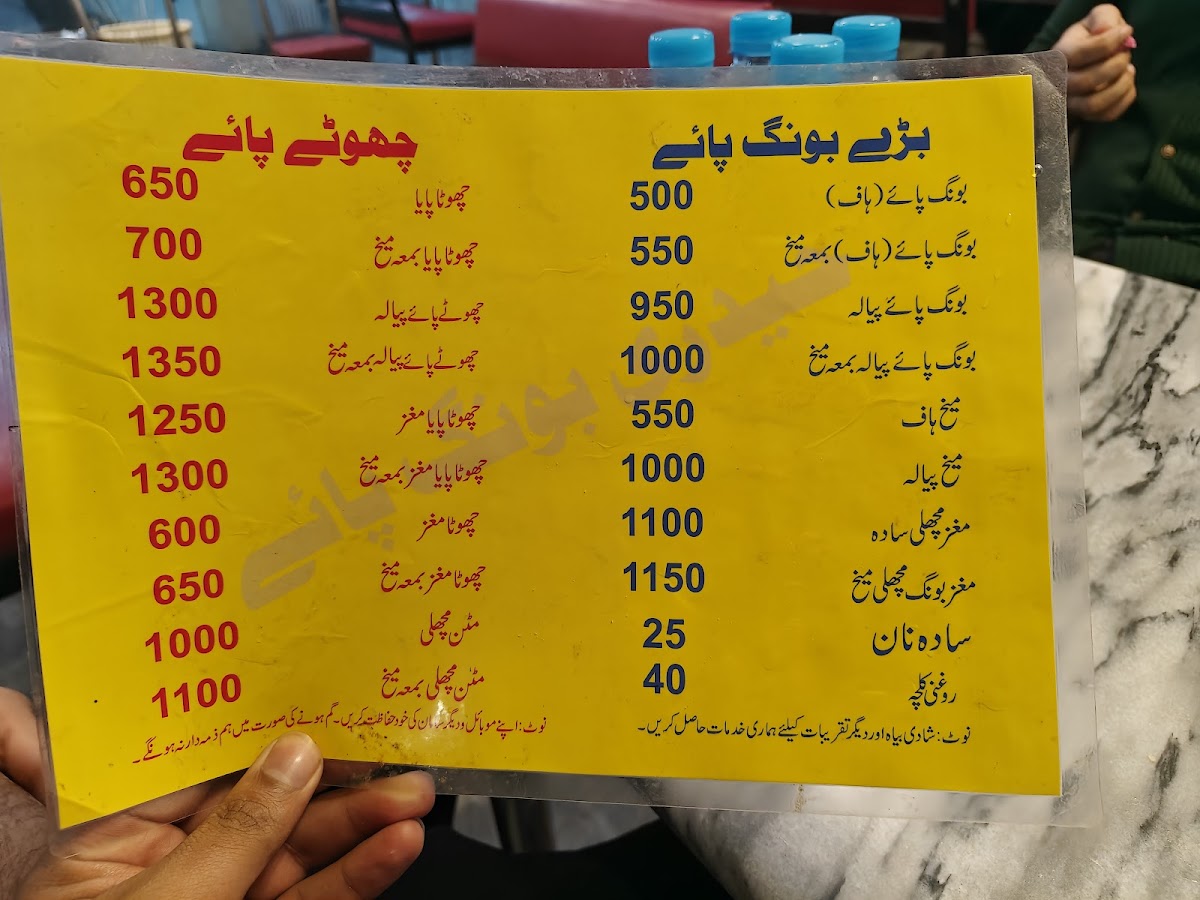 بڑے بونگ پائے
بونگ پائے (ہاف) 500
بونگ پائے (ہاف) بمعہ میخ 550
بونگ پائے پیالہ 950
بونگ پائے پیالہ بمعہ میخ 1000
میخ ہاف 550
میخ پیالہ 1000
مغز مچھلی سادہ 1100
مغز بونگ مچھلی میخ 1150
سادہ نان 25
روغنی کلچہ 40
نوٹ: شادی بیاہ اور دیگر تقریبات کیلئے ہماری خدمات حاصل کریں۔
چھوٹے پائے
چھوٹا پایا 650
چھوٹا پایا بمعہ میخ 700
چھوٹے پائے پیالہ 1300
چھوٹے پائے پیالہ بمعہ میخ 1350
چھوٹا پایا مغز 1250
چھوٹا پایا مغز بمعہ میخ 1300
چھوٹا مغز 600
چھوٹا مغز بمعہ میخ 650
مٹن مچھلی 1000
مٹن مچھلی بمعہ میخ 1100
نوٹ: اپنے موبائل و دیگر سامان کی خود حفاظت کریں۔ گم ہونے کی صورت میں ہم ذمہ دار نہ ہونگے۔
بونگ پائے